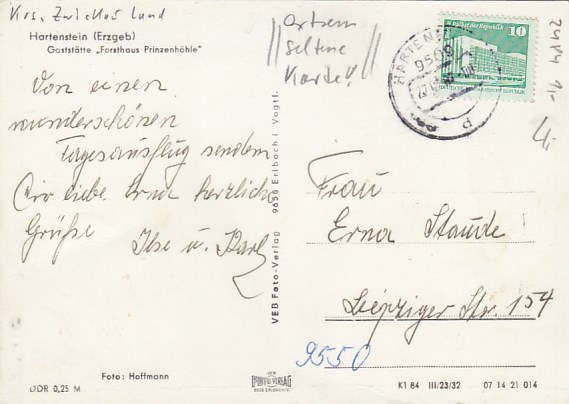 Krs. Zwickau Land
Hartenstein (Erzgeb)
Gaststätte „Forsthaus Prinzenhöhle"
Von einem
wunderschönen
Tagesausflug senden
Dir liebe Erna herzliche
Grüße
Ilse u. Karl
Foto: Hoffmann
DDR 0,25 M
VEB Foto-Verlag 9658 Erlbach i. Vogtl.
Extrem
seltene
Karte!!
HARTENST
9509
10
Frau
Erna Staude
Leipziger Str. 154
9550
VEB
FOTO-VERLAG
K1 84 III/23/32 07 14 21 014